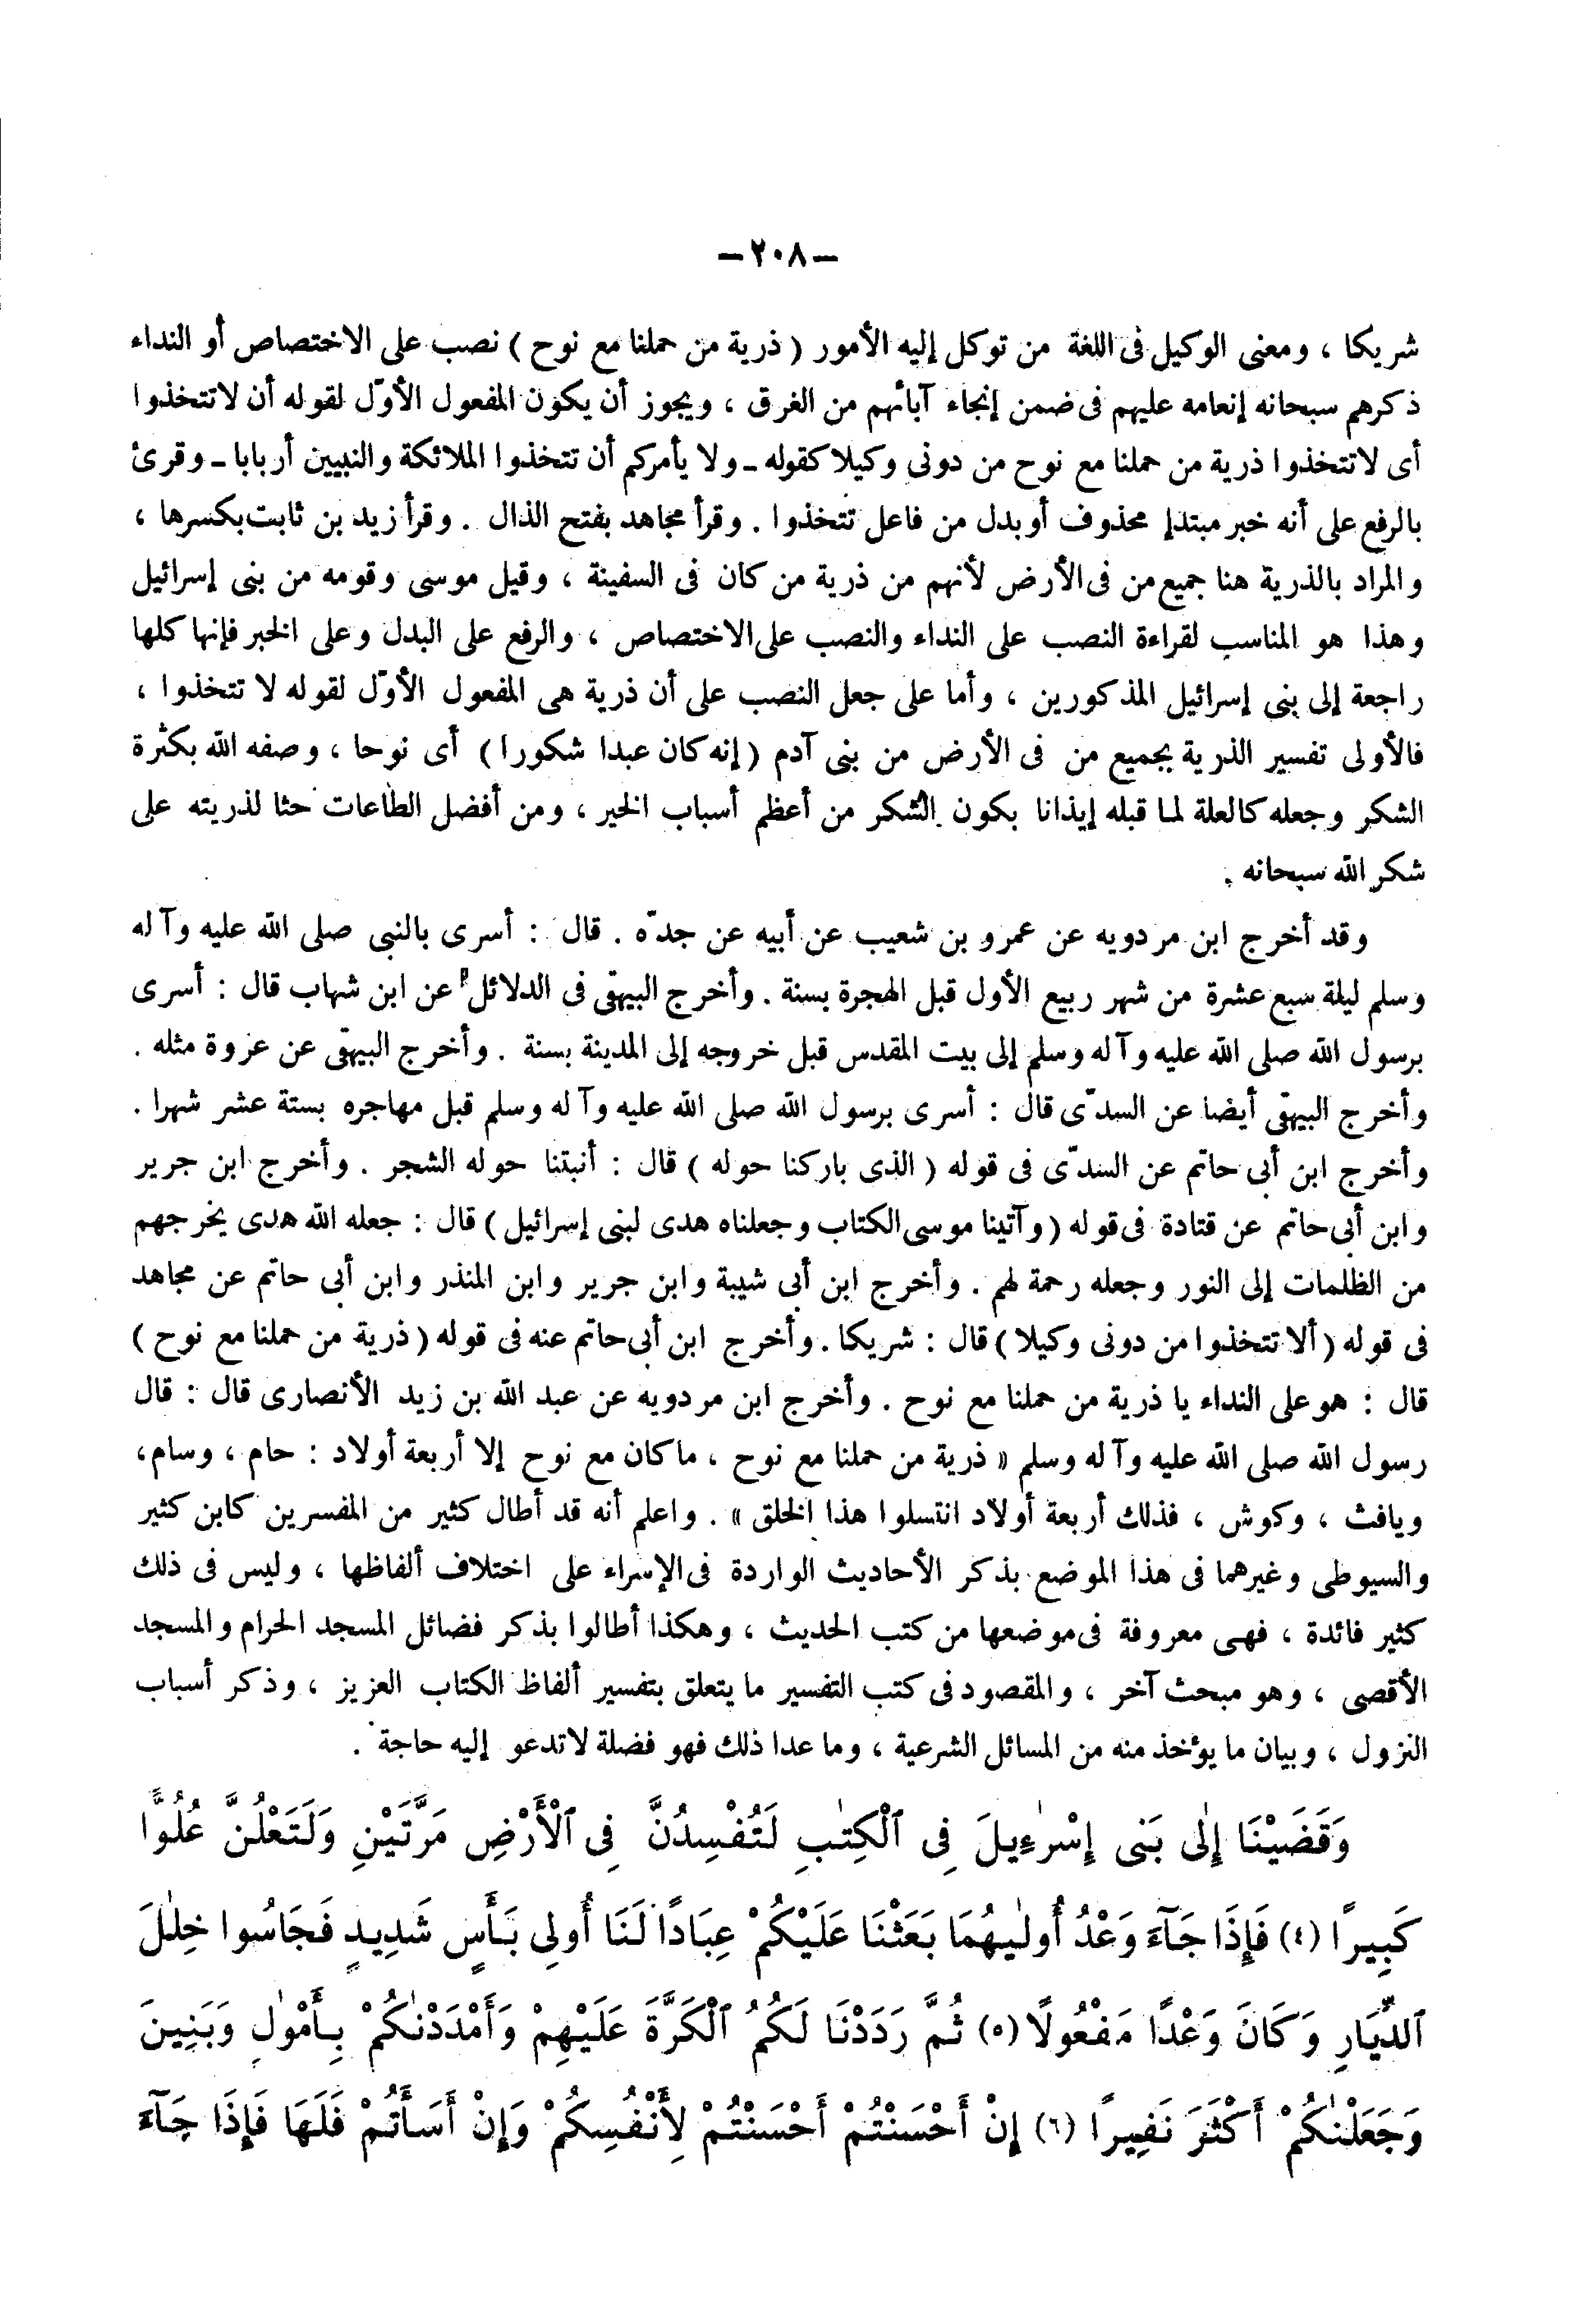 — ٢٠٨ —
شريكا ، ومعنى الوكيل فى اللغة من توكل إليه الأمور ( ذرية من حملنا مع نوح ) نصب على الاختصاص أو النداء
ذكرهم سبحانه إنعامه عليهم فى ضمن إنجاء آبائهم من الغرق ، ويجوز أن يكون المفعول الأوّل لقوله أن لاتتخذوا
أى لاتتخذوا ذرية من حملنا مع نوح من دونى وكيلا كقوله ـ ولا يأمركم أن تتخذوا الملائكة والنبيين أربابا ـ وقرئ
بالرفع على أنه خبر مبتدإ محذوف أو بدل من فاعل تتخذوا . وقرأ مجاهد بفتح الذال . وقرأ زيد بن ثابت بكسرها ،
والمراد بالذرية هنا جميع من فى الأرض لأنهم من ذرية من كان فى السفينة ، وقيل موسى وقومه من بنى إسرائيل
وهذا هو المناسب لقراءة النصب على النداء والنصب على الاختصاص ، والرفع على البدل وعلى الخبر فإنها كلها
راجعة إلى بنى إسرائيل المذكورين ، وأما على جعل النصب على أن ذرية هى المفعول الأوّل لقوله لا تتخذوا ،
فالأولى تفسير الذرية بجميع من فى الأرض من بنى آدم ( إنه كان عبدا شكورا ) أى نوحا ، وصفه الله بكثرة
الشكر وجعله كالعلة لما قبله إيذانا بكون الشكر من أعظم أسباب الخير ، ومن أفضل الطاعات حثا لذريته على
شكر الله سبحانه .
وقد أخرج ابن مردويه عن عمرو بن شعيب عن أبيه عن جدّه . قال : أسرى بالنبى صلى الله عليه وآله
وسلم ليلة سبع عشرة من شهر ربيع الأول قبل الهجرة بسنة . وأخرج البيهقى فى الدلائل عن ابن شهاب قال : أسرى
برسول الله صلى الله عليه وآله وسلم إلى بيت المقدس قبل خروجه إلى المدينة بسنة . وأخرج البيهقى عن عروة مثله .
وأخرج البيهقى أيضا عن السدّى قال : أسرى برسول الله صلى الله عليه وآله وسلم قبل مهاجره بستة عشر شهرا .
وأخرج ابن أبى حاتم عن السدّى فى قوله ( الذى باركنا حوله ) قال : أنبتنا حوله الشجر . وأخرج ابن جرير
وابن أبى حاتم عن قتادة فى قوله ( وآتينا موسى الكتاب وجعلناه هدى لبنى إسرائيل ) قال : جعله الله هدى يخرجهم
من الظلمات إلى النور وجعله رحمة لهم . وأخرج ابن أبى شيبة وابن جرير وابن المنذر وابن أبى حاتم عن مجاهد
فى قوله ( ألا تتخذوا من دونى وكيلا ) قال : شريكا . وأخرج ابن أبى حاتم عنه فى قوله ( ذرية من حملنا مع نوح )
قال : هو على النداء يا ذرية من حملنا مع نوح . وأخرج ابن مردويه عن عبد الله بن زيد الأنصارى قال : قال
رسول الله صلى الله عليه وآله وسلم « ذرية من حملنا مع نوح ، ما كان مع نوح إلا أربعة أولاد : حام ، وسام ،
ويافث ، وكوش ، فذلك أربعة أولاد انتسلوا هذا الخلق » . واعلم أنه قد أطال كثير من المفسرين كابن كثير
والسيوطى وغيرهما فى هذا الموضع بذكر الأحاديث الواردة فى الإسراء على اختلاف ألفاظها ، وليس فى ذلك
كثير فائدة ، فهى معروفة فى موضعها من كتب الحديث ، وهكذا أطالوا بذكر فضائل المسجد الحرام والمسجد
الأقصى ، وهو مبحث آخر ، والمقصود فى كتب التفسير ما يتعلق بتفسير ألفاظ الكتاب العزيز ، وذكر أسباب
النزول ، وبيان ما يؤخذ منه من المسائل الشرعية ، وما عدا ذلك فهو فضلة لاتدعو إليه حاجة .
وَقَضَيْنَا إِلَىٰ بَنِى إِسْرَٰءِيلَ فِى ٱلْكِتَٰبِ لَتُفْسِدُنَّ فِى ٱلْأَرْضِ مَرَّتَيْنِ وَلَتَعْلُنَّ عُلُوًّا
كَبِيرًا (٤) فَإِذَا جَآءَ وَعْدُ أُولَٰىهُمَا بَعَثْنَا عَلَيْكُمْ عِبَادًا لَنَا أُولِى بَأْسٍ شَدِيدٍ فَجَاسُوا خِلَٰلَ
ٱلدِّيَارِ وَكَانَ وَعْدًا مَفْعُولًا (٥) ثُمَّ رَدَدْنَا لَكُمُ ٱلْكَرَّةَ عَلَيْهِمْ وَأَمْدَدْنَٰكُمْ بِأَمْوَٰلٍ وَبَنِينَ
وَجَعَلْنَٰكُمْ أَكْثَرَ نَفِيرًا (٦) إِنْ أَحْسَنْتُمْ أَحْسَنْتُمْ لِأَنْفُسِكُمْ وَإِنْ أَسَأْتُمْ فَلَهَا فَإِذَا جَآءَ